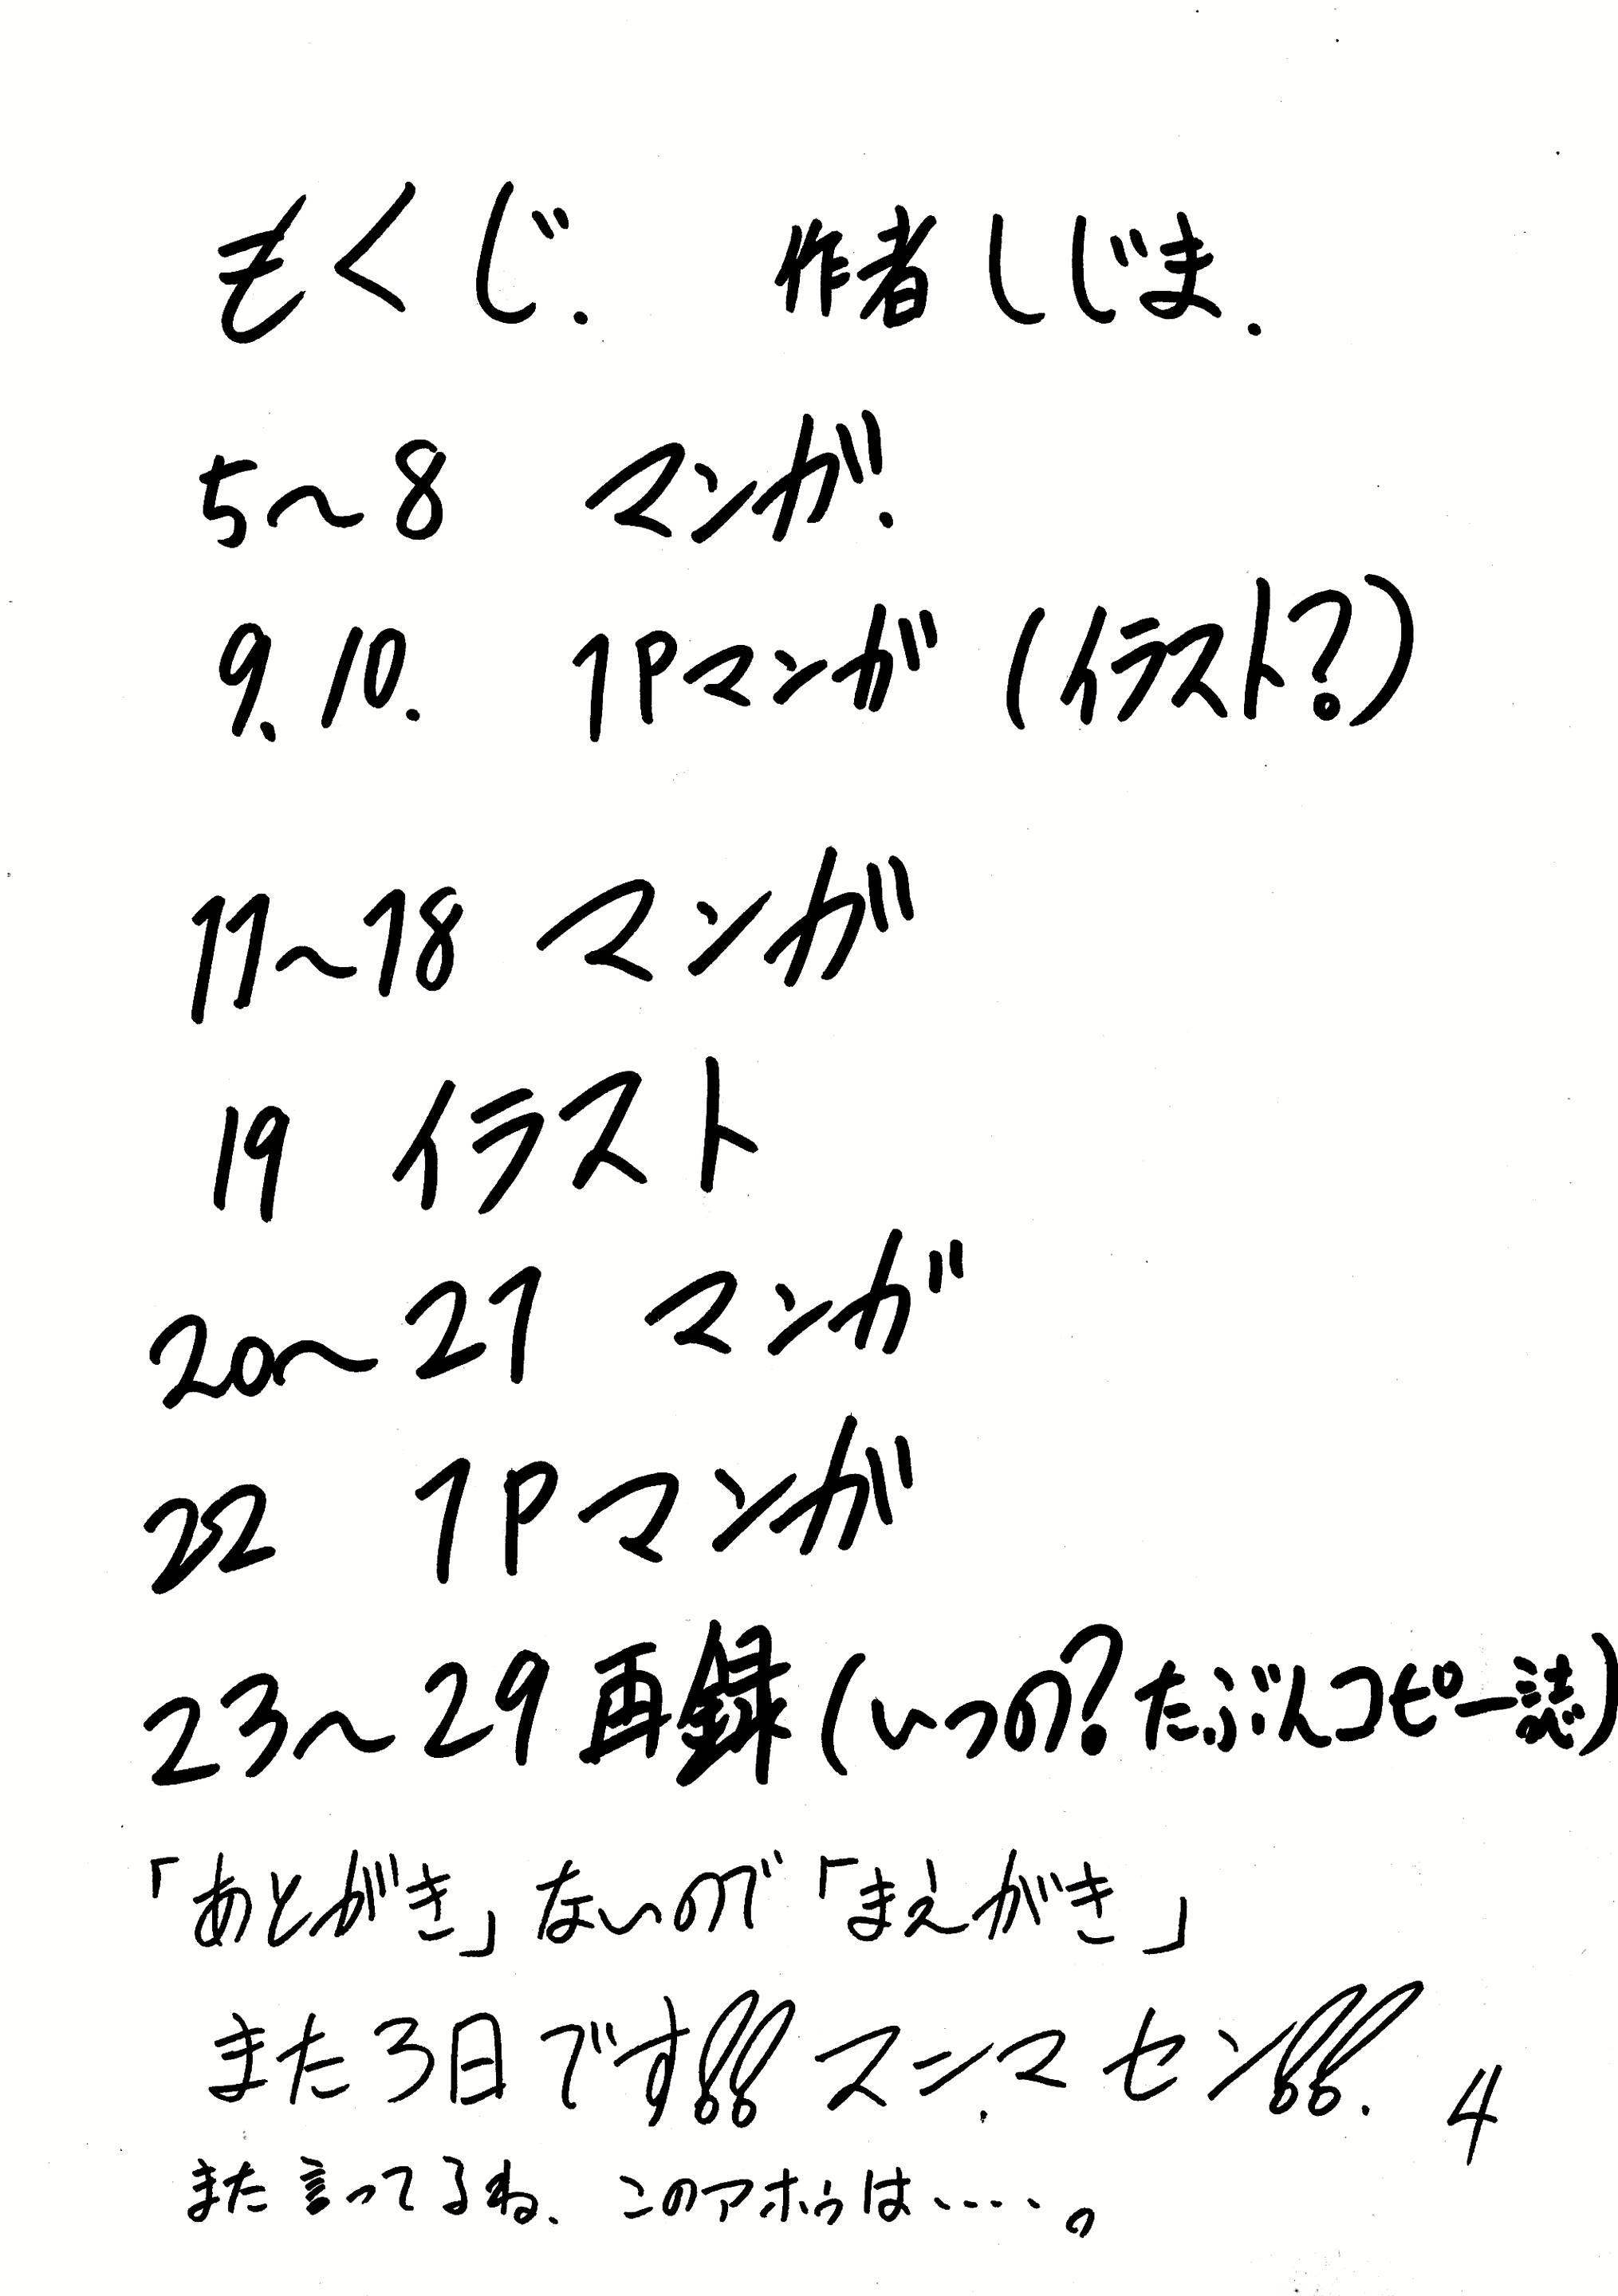 もくじ. 作者 しじま.
5〜8 マンガ.
9. 10. 1Pマンガ (イラスト?)
11〜18 マンガ
19 イラスト
20〜21 マンガ
22 1Pマンガ
23〜29 再録 (いつの?たぶんコピー誌)
「あとがき」ないので「まえがき」
また3日です!!スンマセン!!.
4
また言ってるね、このアホゥは・・・・。